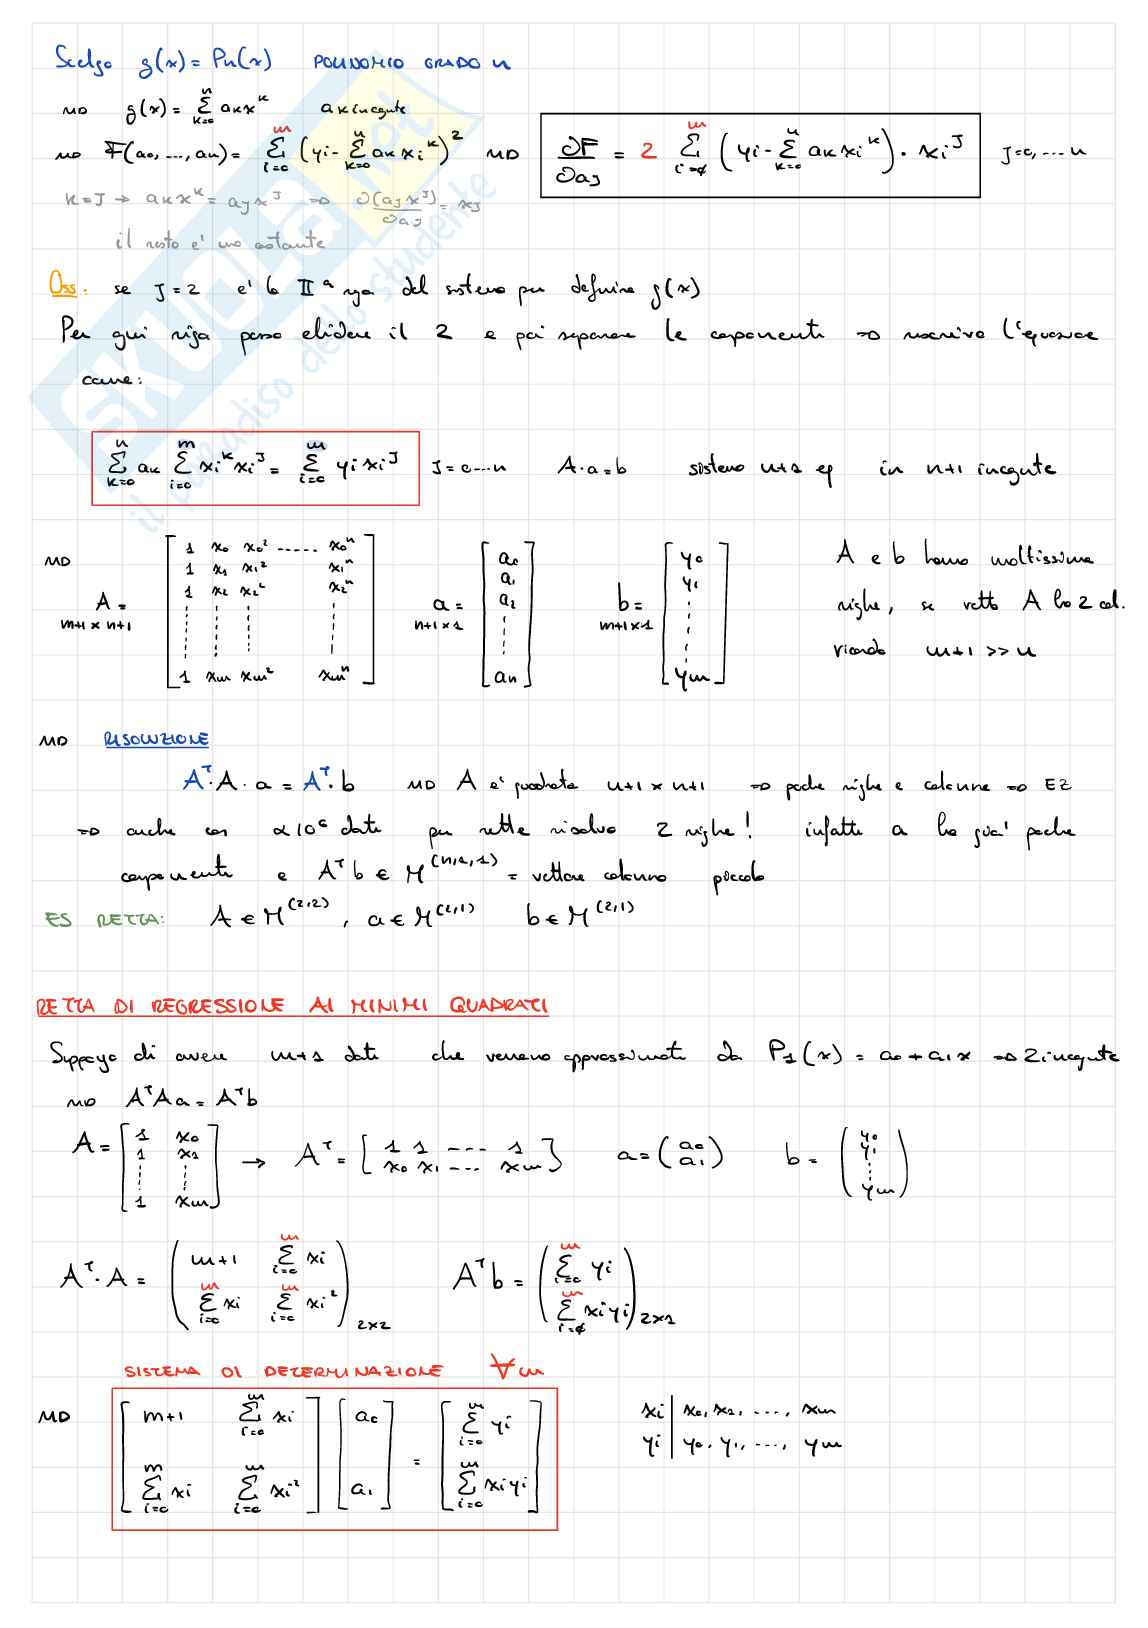 Scelgo g(x) = Pn(x) POLINOMIO GRADO n
⇝ g(x) = Σ_{k=0}^{n} aₖxᵏ aₖ incognite
⇝ F(a₀, ..., aₙ) = Σ_{i=0}^{m} (yᵢ - Σ_{k=0}^{n} aₖ xᵢᵏ)² ⇝ ∂F/∂aⱼ = 2 Σ_{i=0}^{m} (yᵢ - Σ_{k=0}^{n} aₖ xᵢᵏ) · xᵢʲ J=0, ... n
K=J → aₖxᵏ = aⱼxʲ ⇒ ∂(aⱼxʲ)/∂aⱼ = xʲ
il resto e' una costante
Oss: se J=2 e' la IIª riga del sistema per definire g(x)
Per ogni riga posso elidere il 2 e poi separare le componenti ⇒ riscrivo l'equazione
come:
Σ_{k=0}^{n} aₖ Σ_{i=0}^{m} xᵢᵏxᵢʲ = Σ_{i=0}^{m} yᵢxᵢʲ J=0...n A·a=b sistema n+1 eq in n+1 incognite
⇝ A = [1 x₀ x₀² ..... x₀ⁿ; 1 x₁ x₁² x₁ⁿ; 1 x₂ x₂² x₂ⁿ; ⋮ ⋮ ⋮ ⋮; 1 xm xm² xmⁿ] a = [a₀ a₁ a₂ ⋮ an] b = [y₀ y₁ ⋮ ym] A e b hanno moltissime
m+1 x n+1 n+1 x 1 m+1 x 1 righe, se retta A ha 2 col.
ricorda m+1 >> n
⇝ RISOLUZIONE
Aᵀ·A·a = Aᵀ·b ⇝ A e' quadrata n+1 x n+1 ⇒ poche righe e colonne ⇒ EZ
⇒ anche con α10⁶ dati per rette risolvo 2 righe! infatti a ha gia' poche
componenti e Aᵀb ∈ M^(n+1,1) = vettore colonna piccolo
ES RETTA: A ∈ M^(2,2), a ∈ M^(2,1) b ∈ M^(2,1)
RETTA DI REGRESSIONE AI MINIMI QUADRATI
Suppongo di avere m+1 dati che vengono approssimati da P₁(x) = a₀ + a₁x ⇒ 2 incognite
⇝ AᵀAa = Aᵀb
A = [1 x₀; 1 x₁; ⋮ ⋮; 1 xm] → Aᵀ = [1 1 --- 1; x₀ x₁ --- xm] a = (a₀ a₁) b = (y₀ y₁ ⋮ ym)
Aᵀ·A = (m+1 Σ_{i=0}^{m} xᵢ; Σ_{i=0}^{m} xᵢ Σ_{i=0}^{m} xᵢ²) 2x2 Aᵀb = (Σ_{i=0}^{m} yᵢ; Σ_{i=0}^{m} xᵢyᵢ) 2x1
SISTEMA DI DETERMINAZIONE ∀m
⇝ [m+1 Σ_{i=0}^{m} xᵢ; Σ_{i=0}^{m} xᵢ Σ_{i=0}^{m} xᵢ²] [a₀; a₁] = [Σ_{i=0}^{m} yᵢ; Σ_{i=0}^{m} xᵢyᵢ]
xᵢ | x₀, x₁, ..., xm
yᵢ | y₀, y₁, ..., ym
SKUOLA.net
il paradiso dello studente